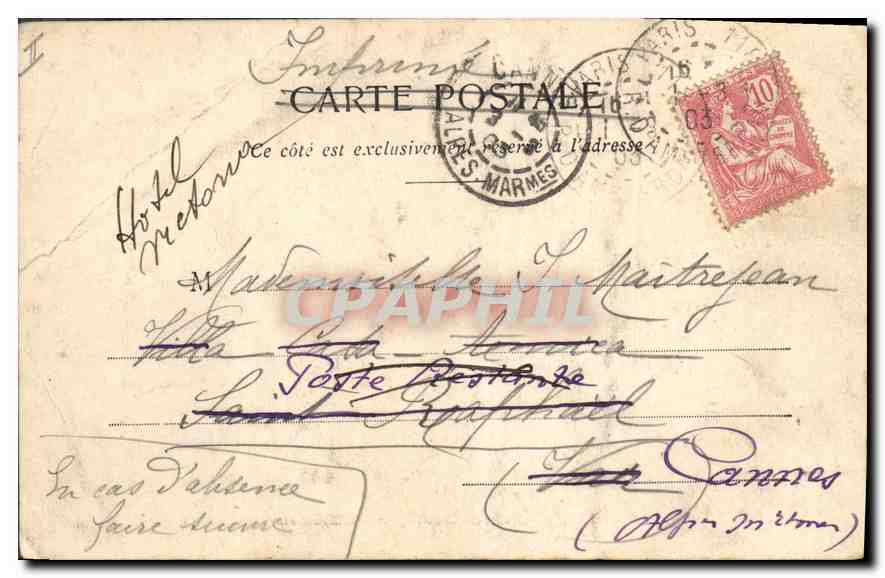 II
Imprimé
CARTE POSTALE
Ce côté est exclusivement réservé à l'adresse
Hotel
Victoria
CANNES
ALPES-MARMES
PARIS
PARIS
16
03
10
CPAPHIL
M Mademoiselle J Maîtrejean
Villa
Poste Restante
Saint Raphaël
(Var Cannes
(Alpes Mtimes)
En cas d'absence
faire suivre